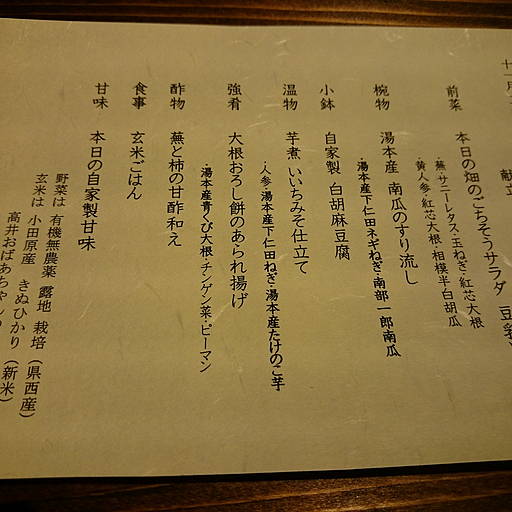 十一月
献立
前菜 本日の畑のごちそうサラダ 豆乳
・蕪・サニーレタス・玉ねぎ・紅芯大根
黄人参・紅芯大根・相模半白胡瓜
椀物 湯本産 南瓜のすり流し
・湯本産下仁田ネギねぎ・南部一郎南瓜
小鉢 自家製 白胡麻豆腐
温物 芋煮 いいちみそ仕立て
・人参・湯本産下仁田ねぎ・湯本産たけのこ芋
強肴 大根おろし餅のあられ揚げ
・湯本産青くび大根・チンゲン菜・ピーマン
酢物 蕪と柿の甘酢和え
食事 玄米ごはん
甘味 本日の自家製甘味
野菜は 有機無農薬 露地 栽培 (県西産)
玄米は 小田原産 きぬひかり (新米)
高井おばあちゃん